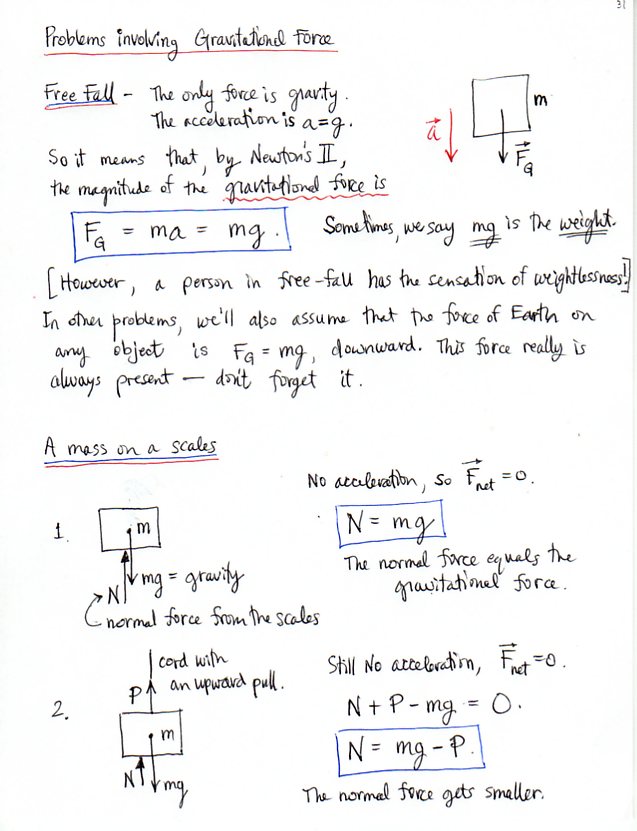 31
Problems involving Gravitational Force
Free Fall - The only force is gravity.
The acceleration is a=g.
m
a
F_G
So it means that, by Newton's II,
the magnitude of the gravitational force is
F_G = ma = mg. Sometimes, we say mg is the weight.
[However, a person in free-fall has the sensation of weightlessness!]
In other problems, we'll also assume that the force of Earth on
any object is F_G = mg, downward. This force really is
always present — don't forget it.
A mass on a scales
No acceleration, so F_net = 0.
1.
m
N = mg
mg = gravity
N
The normal force equals the
gravitational force.
normal force from the scales
cord with
an upward pull.
P
Still No acceleration, F_net = 0.
2.
m
N + P - mg = 0.
N = mg - P.
N
mg
The normal force gets smaller.